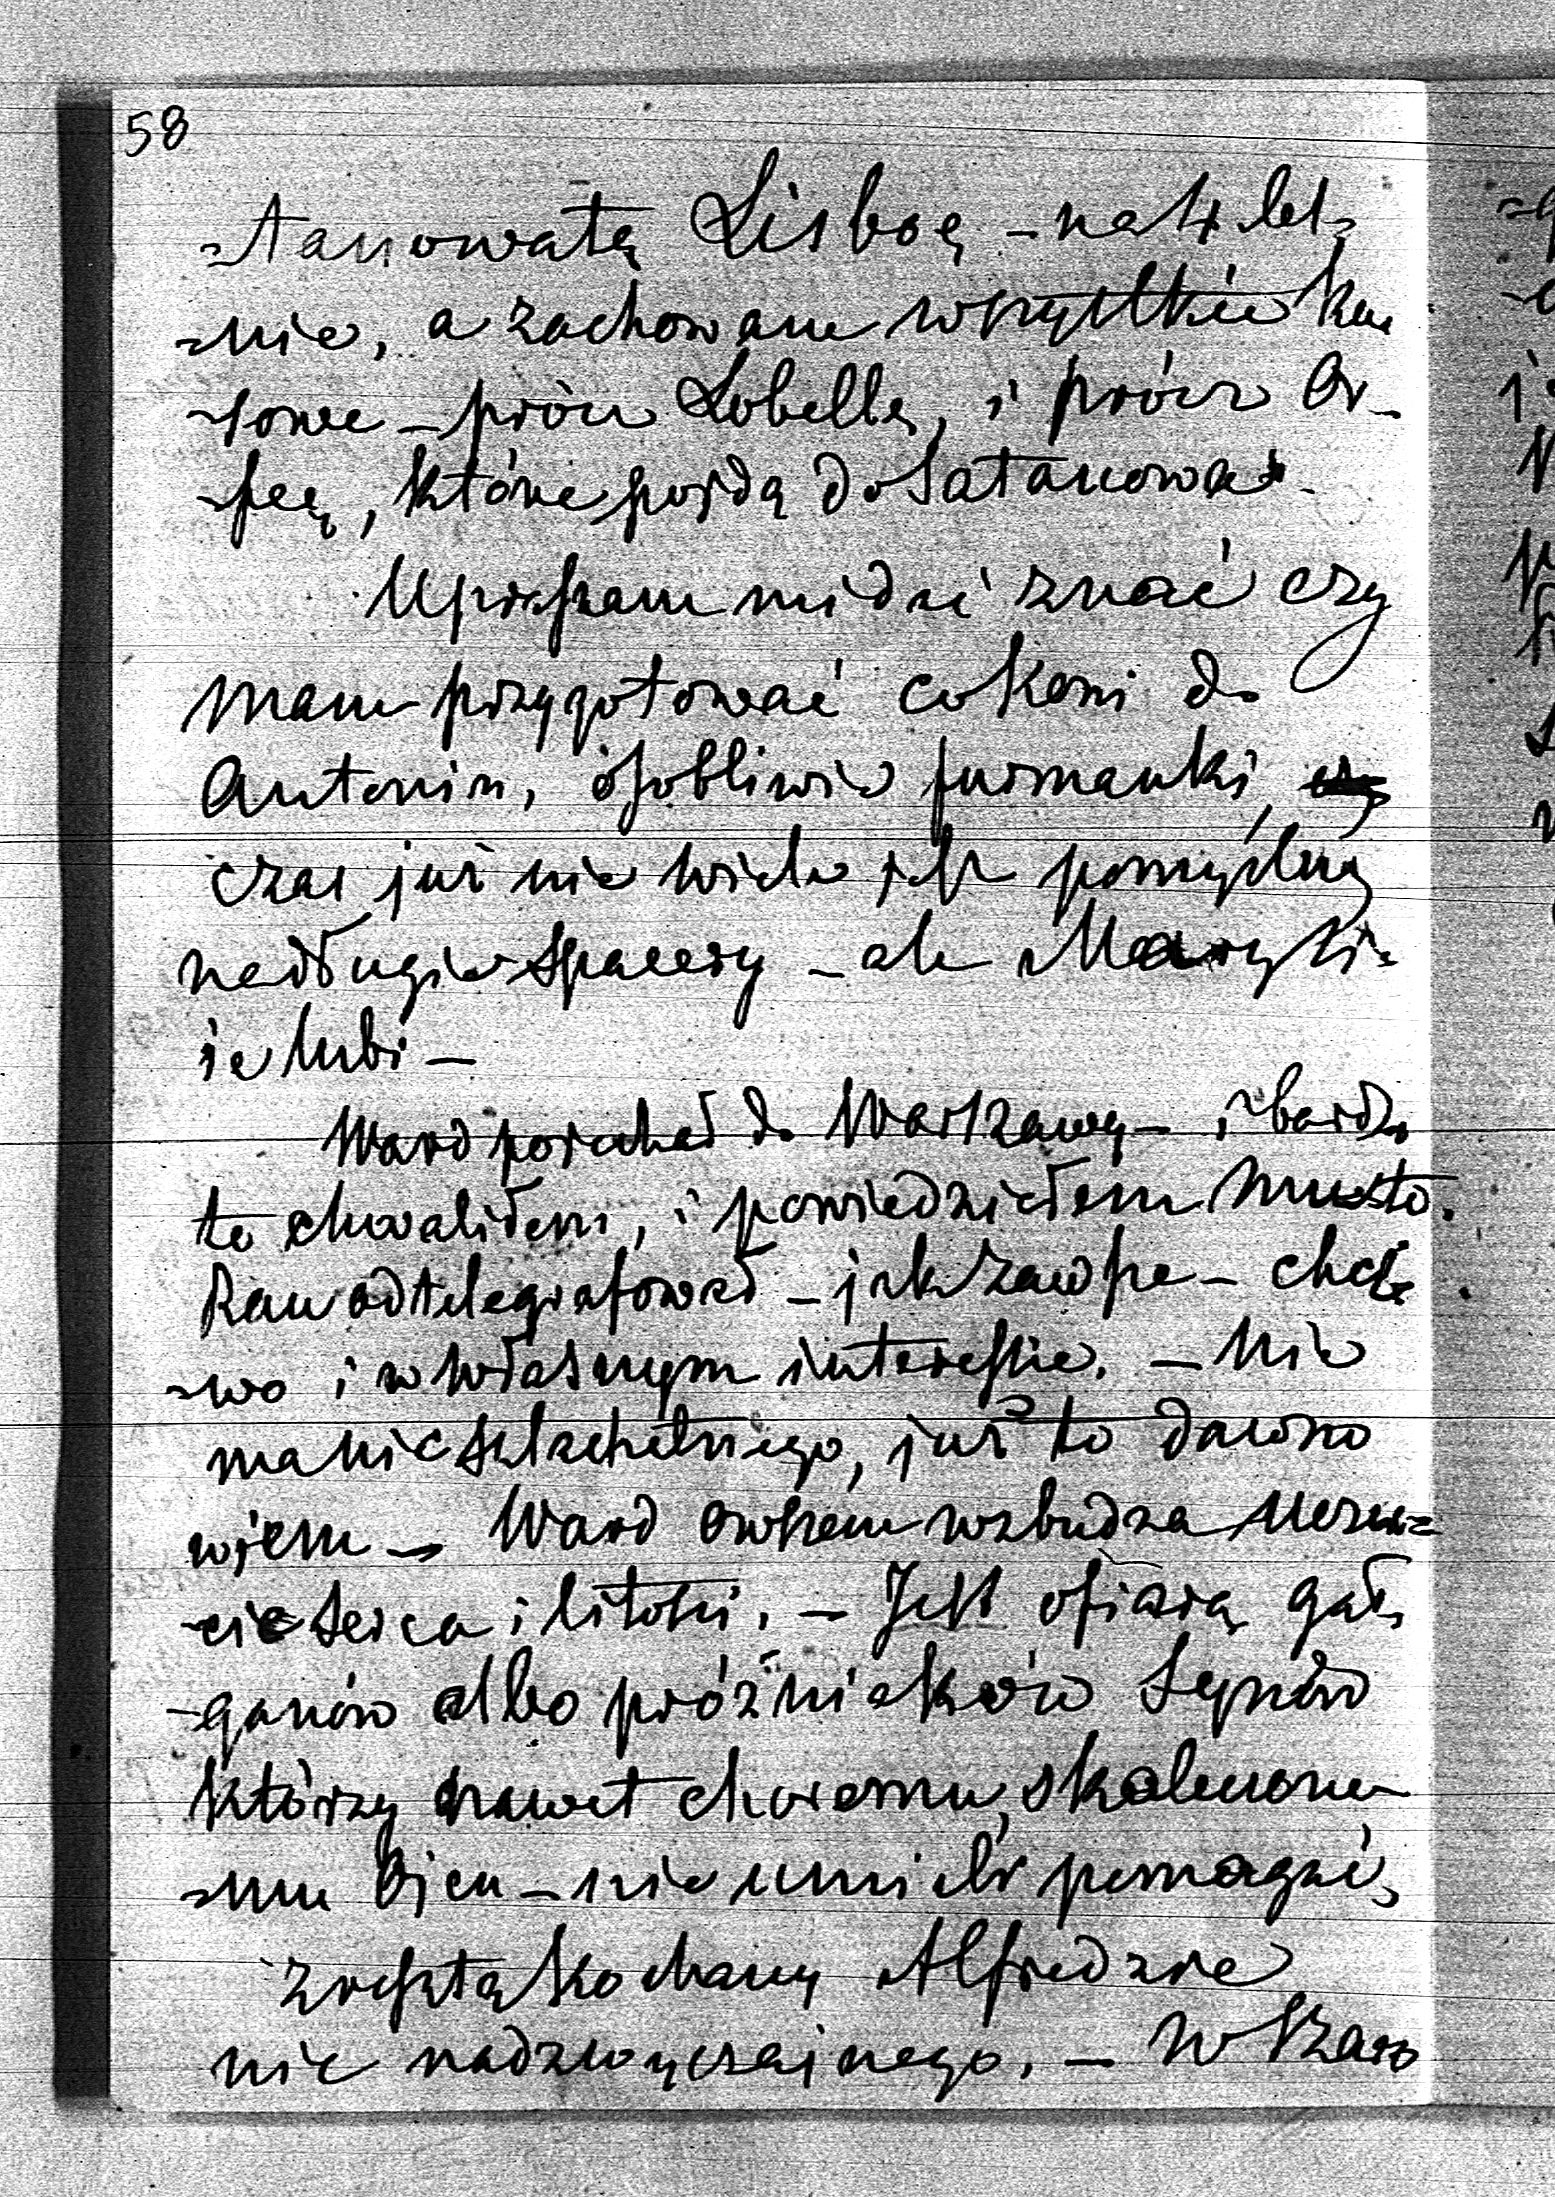 58
-stanowatą Lisboę - na 4 let-
-nie, a zachowane wszystkie ka-
-sowe - prócz Lobellę, i prócz Or-
-feę, które pojdą do Satanowa.
Upraszam mi dać znać czy
mam przygotować co koni do
Antonin, osobliwie furmanki,
czas już nie wiele jest pomyślny
na długie spacery - ale Maryś
je lubi -
Ward pojechał do Warszawy - i bardzo
to chwaliłem, i powiedziałem mu to.
Rau odtelegrafował - jak zawsze - chci-
-wo i w własnym interessie. - Nie
ma nic szlachetnego, już to dawno
wiem - Ward owszem wzbudza uczu-
-cie serca i litości. - Jest ofiarą gał-
-ganów albo próżniaków Synów
którzy nawet choremu, skaleczone-
-mu Ojcu - nie umieli pomagać,
zresztą kochany Alfredzie
nic nadzwyczajnego. -